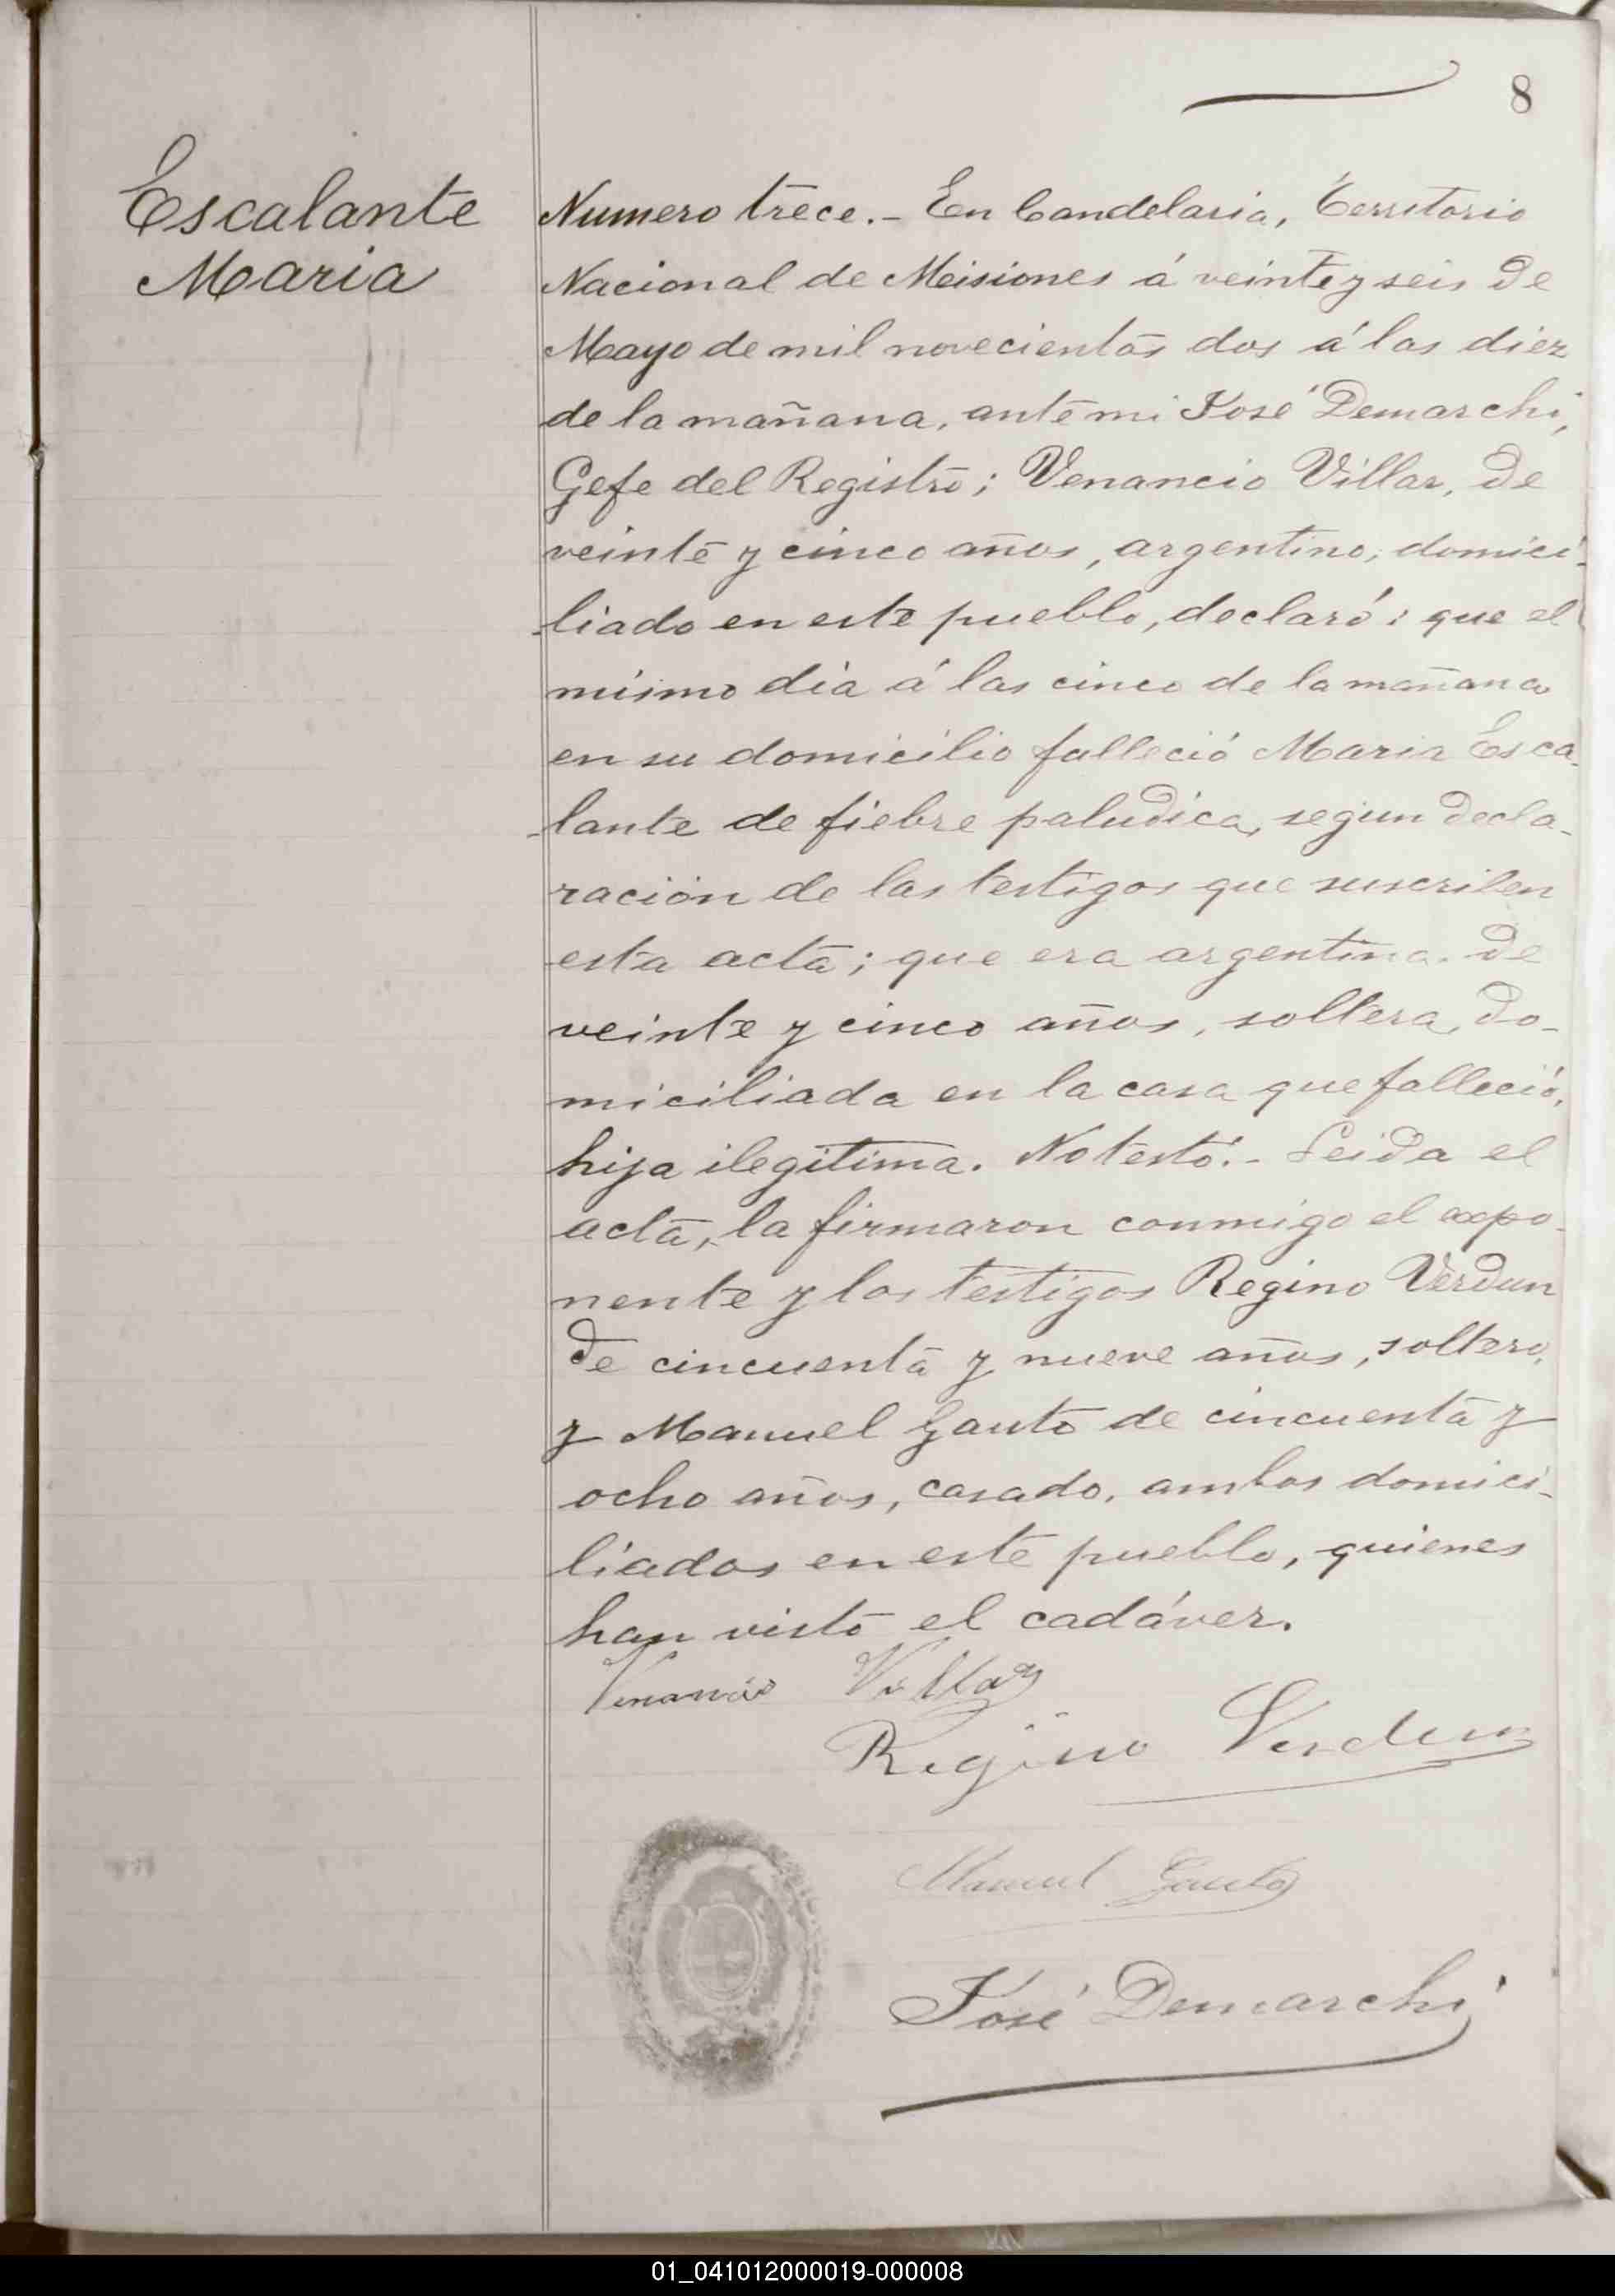 8
Escalante
Maria
Numero trece.- En Candelaria, Territorio
Nacional de Misiones á veinte y seis de
Mayo de mil novecientos dos á las diez
de la mañana, ante mi José Demarchi,
Gefe del Registro; Venancio Villar, de
veinte y cinco años, argentino, domici-
liado en este pueblo, declaró: que el
mismo dia á las cinco de la mañana
en su domicilio falleció Maria Esca-
lante de fiebre paludica, segun decla-
ración de los testigos que suscriben
esta acta; que era argentina, de
veinte y cinco años, soltera, do-
miciliada en la casa que falleció,
hija ilegitima. No testó.- Leida el
acta, la firmaron conmigo el expo-
nente y los testigos Regino Verdun
de cincuenta y nueve años, soltero,
y Manuel Gauto de cincuenta y
ocho años, casado, ambos domici-
liados en este pueblo, quienes
han visto el cadáver.
Venancio Villar
Regino Verdun
Manuel Gauto
José Demarchi
01_041012000019-000008